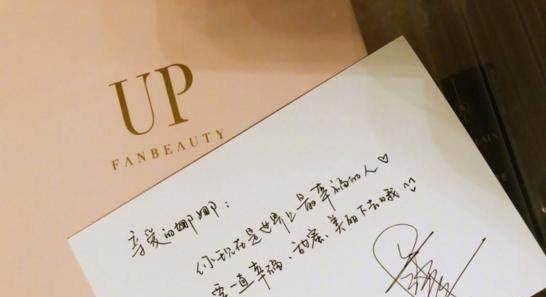 UP
FANBEAUTY
亲爱的娜娜：
你现在是世界上最幸福的人♡
要一直幸福、甜蜜、美的